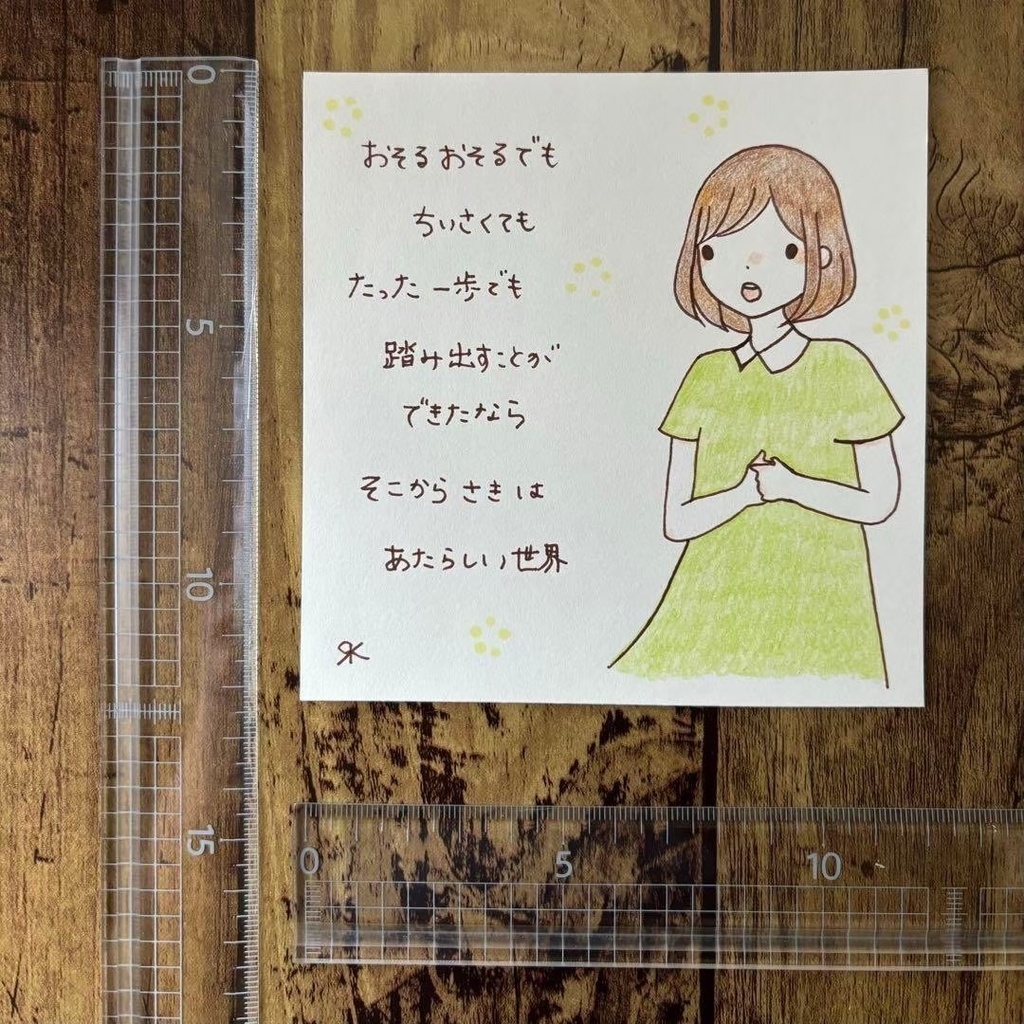 おそるおそるでも
ちいさくても
たった一歩でも
踏み出すことが
できたなら
そこからさきは
あたらしい世界
0
5
10
15
0
5
10